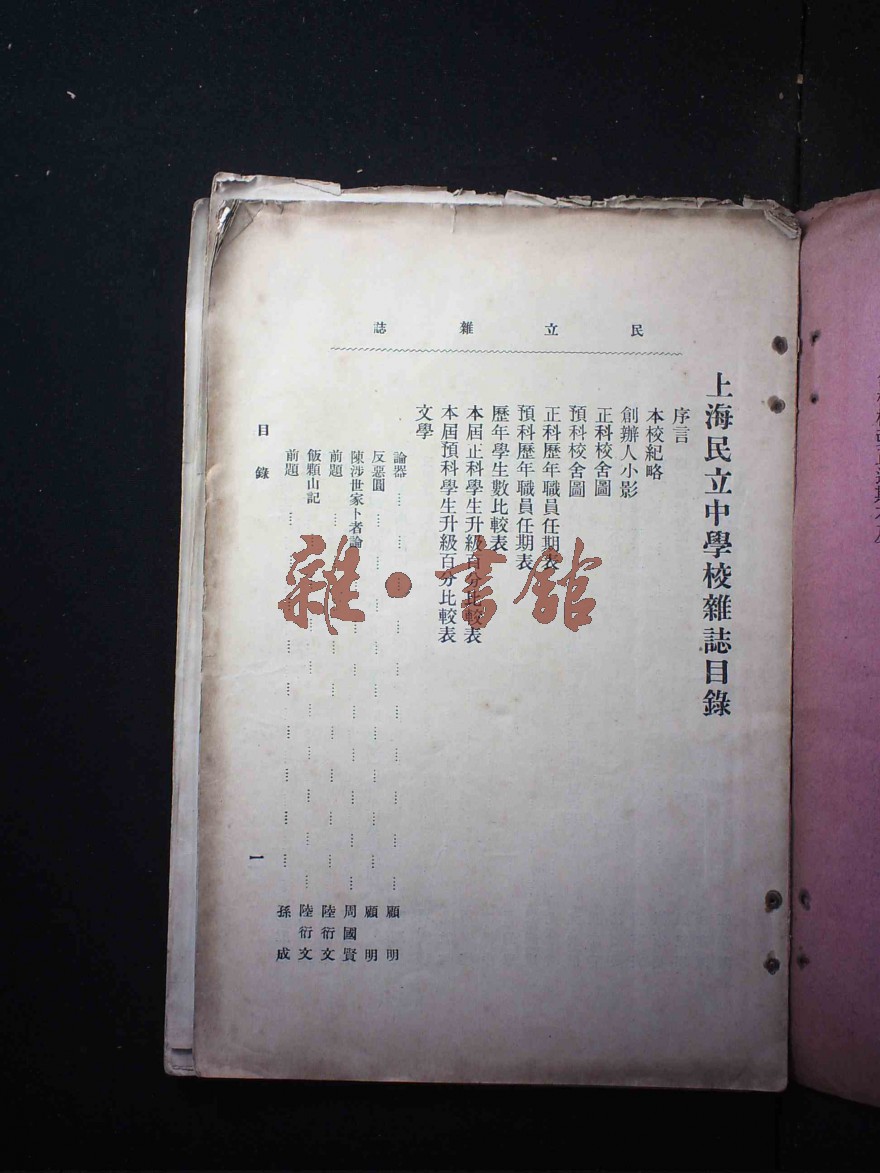 民立雜誌
上海民立中學校雜誌目錄
序言
本校紀略
創辦人小影
正科校舍圖
預科校舍圖
正科歷年職員任期表
預科歷年職員任期表
歷年學生數比較表
本屆正科學生升級百分比較表
本屆預科學生升級百分比較表
文學
論器 顧明
反惡圓 顧明
陳涉世家卜者論 周國賢
前題 陸衍文
飯顆山記 陸衍文
前題 孫成
目錄 一
雜·書館